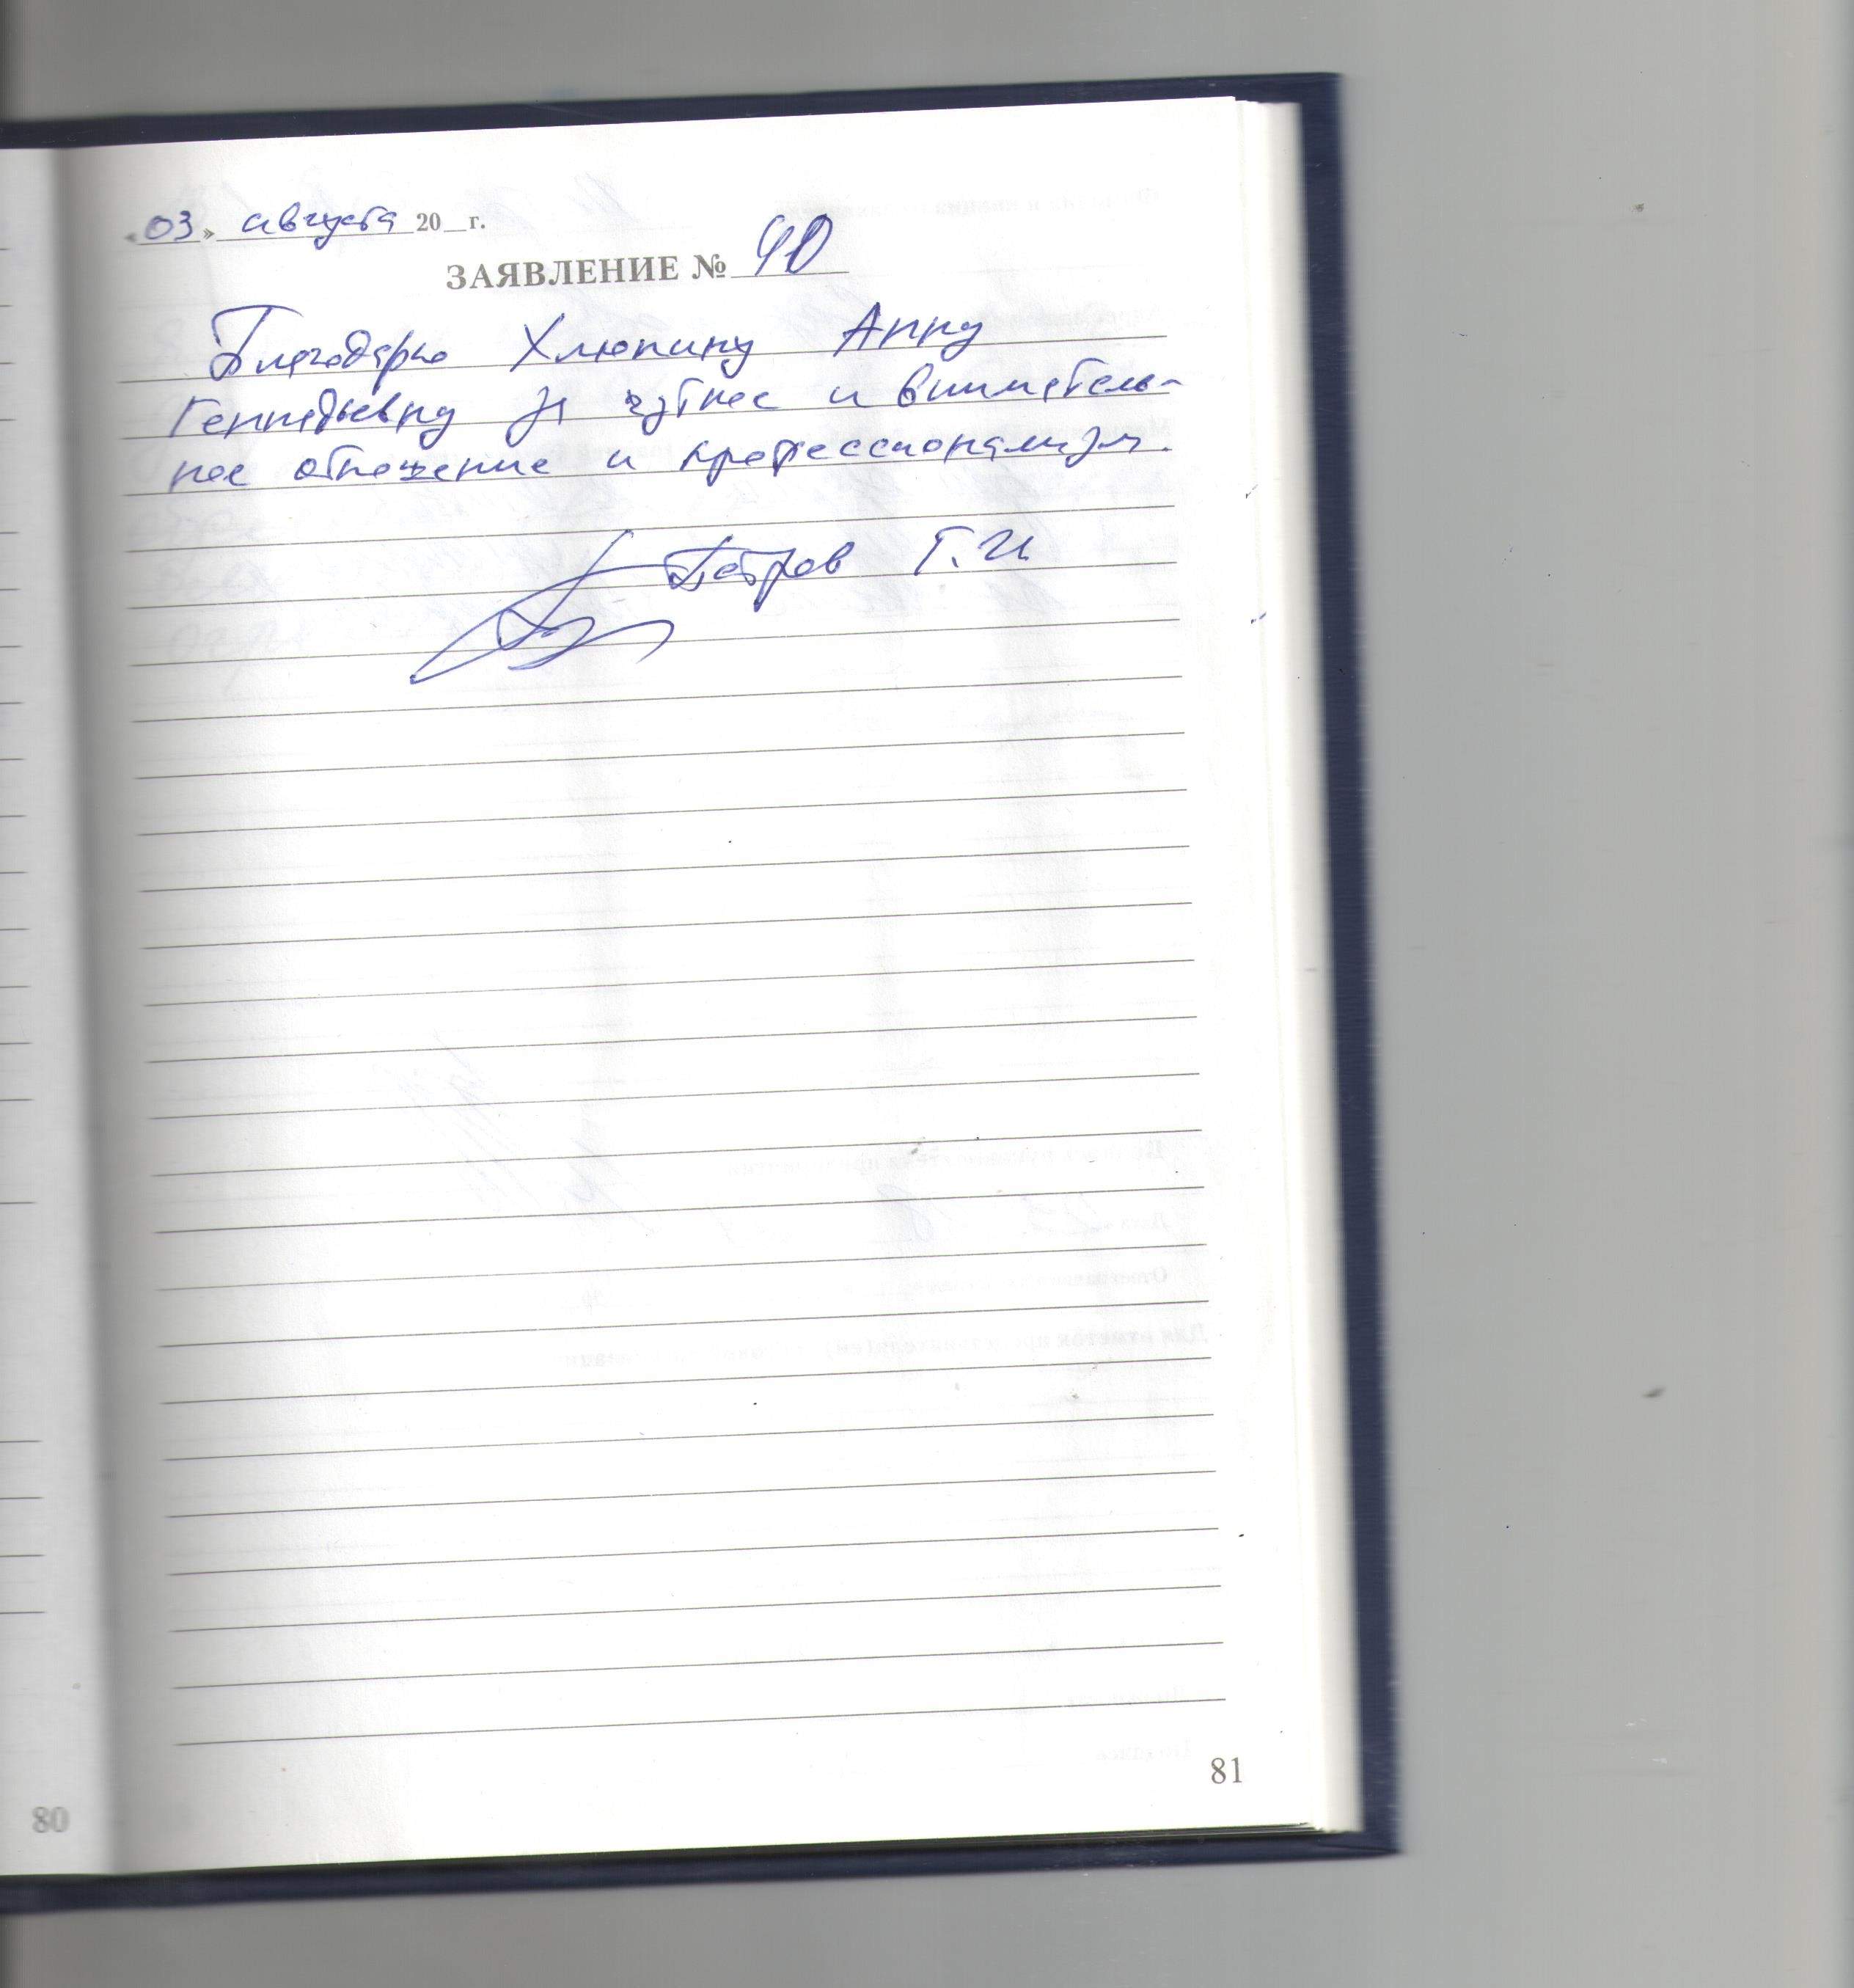 «03» августа 20__г.
ЗАЯВЛЕНИЕ № 40
Благодарю Хлюпину Анну
Геннадьевну за чуткое и вниматель-
ное отношение и профессионализм.
Петров Г.И
81
80